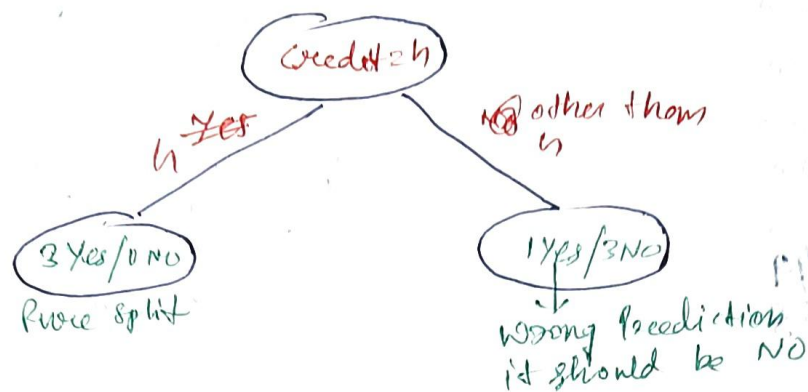 Credit = h
h Yes
No other than
h
3 Yes/0 NO
Pure split
1 Yes/3 NO
wrong Prediction
it should be NO